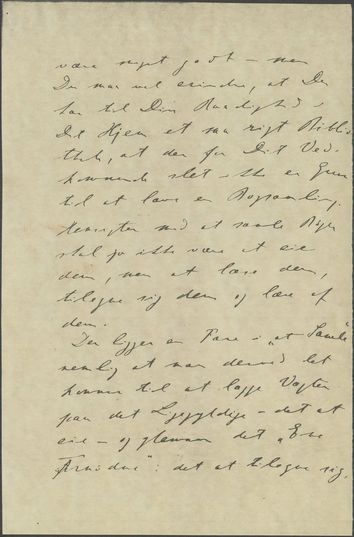 være noget godt – men
Du maa vel erindre, at Du
har til Din Raadighed i
Dit Hjem et saa rigt Biblio-
thek, at der for Dit Ved-
kommende slet ikke er Grund
til at lave en Bogsamling.
Hensigten med at samle Bøger
skal jo ikke være at eie
dem, men at læse dem,
tilegne sig dem og lære af
dem.
Der ligger en Fare i „at Samle“
nemlig at man derved let
kommer til at lægge Vægten
paa det Ligegyldige – det at
eie – og glemmer det „Ene
Fornødne“: det at tilegne sig.